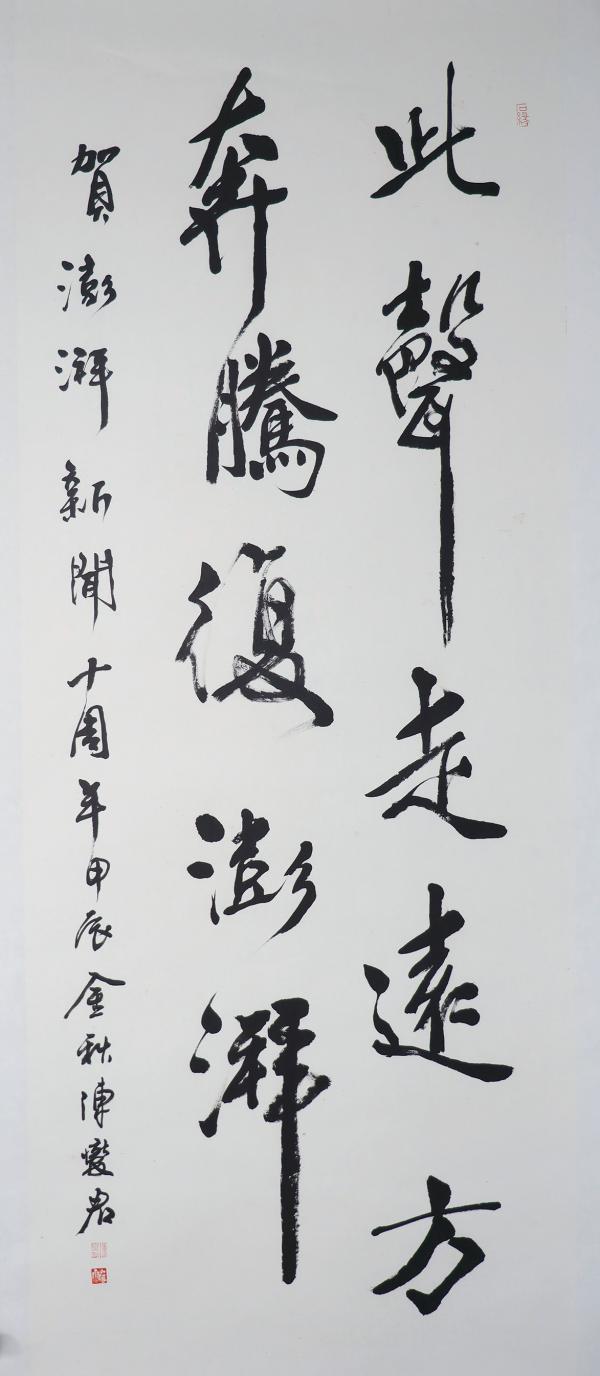 此聲走遠方
奔騰復澎湃
賀澎湃新聞十周年甲辰金秋陳燮君